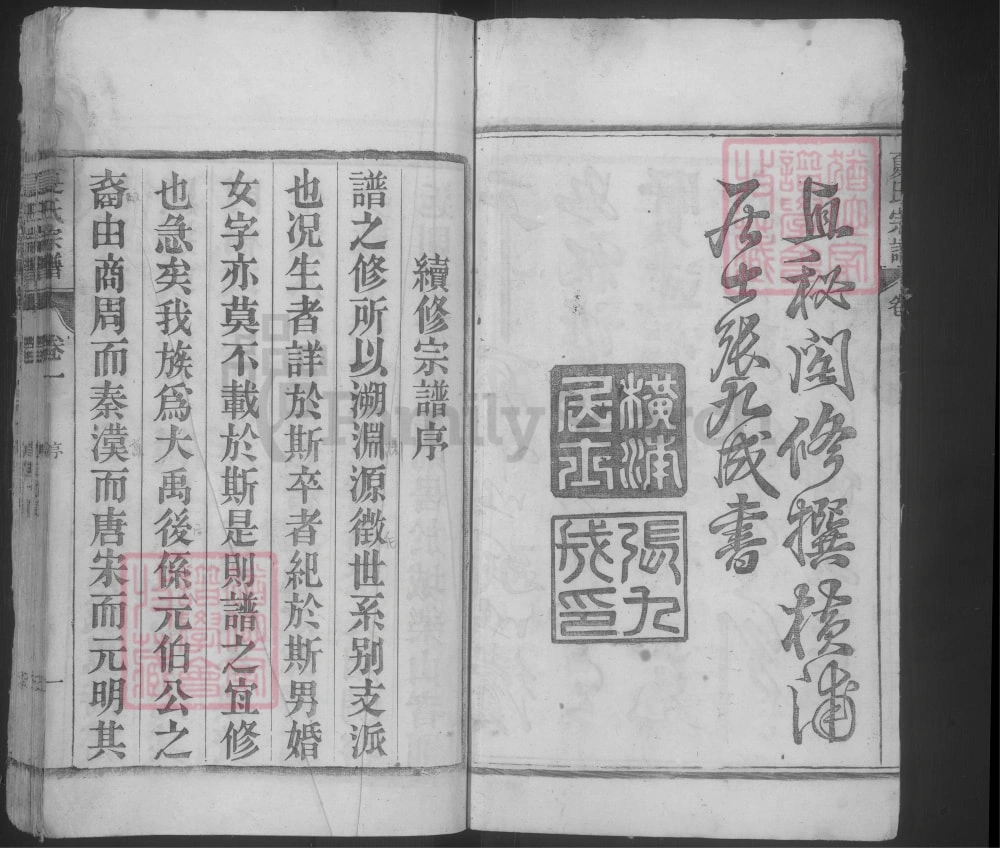 夏氏宗譜
卷
直秘閣修撰橫浦
居士張九成書
橫浦
居士
張九
成印
續修宗譜序
譜之修所以溯淵源徵世系别支派
也况生者詳於斯卒者紀於斯男婚
女字亦莫不載於斯是則譜之宜修
也急矣我族爲大禹後係元伯公之
裔由商周而秦漢而唐宋而元明其
夏氏宗譜
卷一
序
一